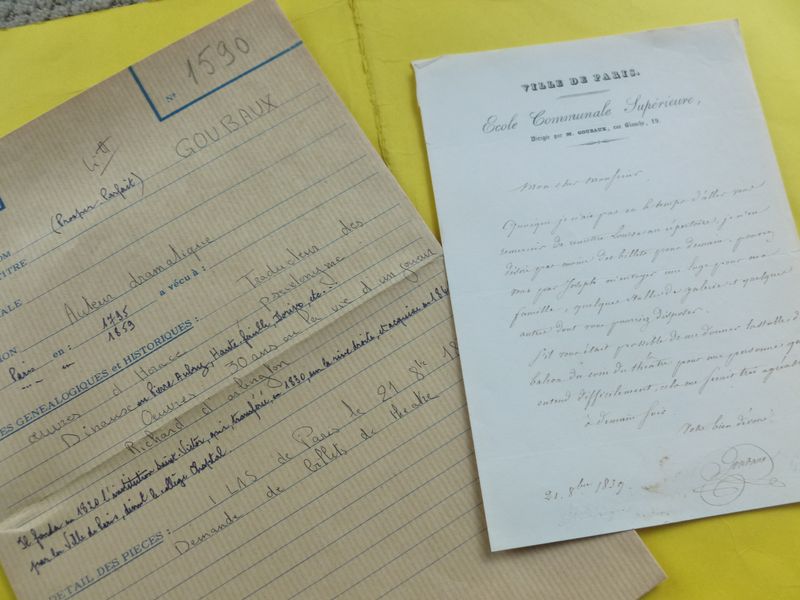 Nº 1590
Litt
GOUBAUX
(Prosper-Parfait)
NOM
TITRE
Auteur dramatique
Paris en : 1795 a vécu à :
---- en 1859
ES GENEALOGIQUES et HISTORIQUES : Traducteur des
œuvres d'Horace. Pseudonyme
Dinaux en Pierre Aubry, Hauteseuille,
Œuvres 30 ans ou la vie d'un joueur
Richard d'Arlington
Il fonda en 1820 l'institution Saint-Victor, transférée, en 1830, sur la rive droite, et acquise en
par la Ville de Paris, devint le collège Chaptal.
DETAIL DES PIECES : 1 LAS de Paris le 21 8bre 18
Demande de billets de théatre
VILLE DE PARIS.
Ecole Communale Supérieure,
Dirigée par M. GOUBAUX, rue Blanche, 19.
Mon cher Monsieur,
Quoique je n'aie pas eu le temps d'aller vous
remercier de remettre au répertoire, je n'en
désire pas moins des billets pour demain. pourriez
vous par Joseph m'envoyer une loge pour ma
famille, quelques stalles de galerie et quelques
autres dont vous pourriez disposer.
S'il vous était possible de me donner la stalle de
balcon du coin du théâtre pour une personne qui
entend difficilement, cela me serait très agréable
à demain soir
Votre bien dévoué
Goubaux
21. 8bre 1839